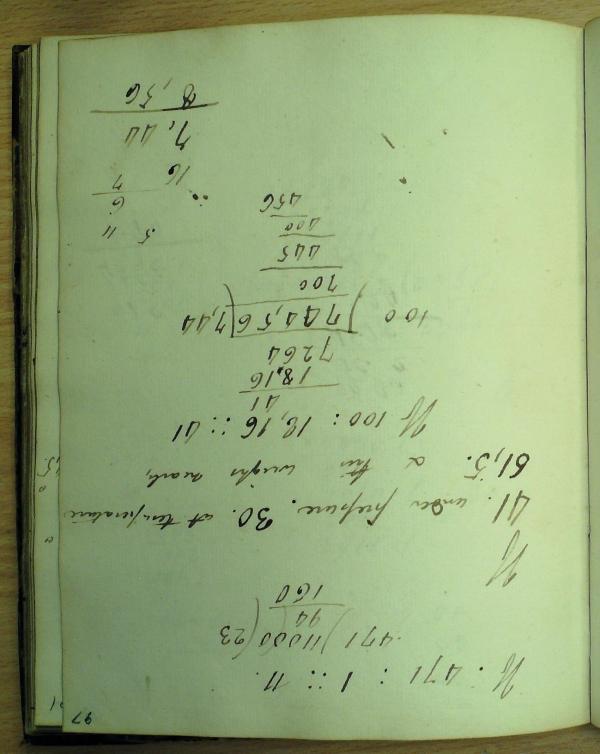 97
If .471 : 1 :: 11.
.471 ) 11000 ( 23
94
160
If
41 . under preſsure . 30. at temperature
61,5. this weighs nearly,
If 100 : 18,16 :: 41
41
18,16
7264
100 ) 744,56 ( 7,44
700
445
400
456
5 11
6
7
16
7,44
8,56